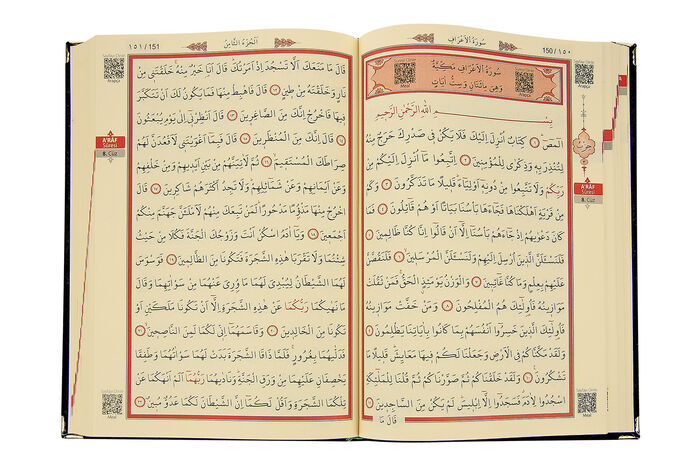 ١٥٠ / 150
سُورَةُ الْاَعْرَافِ
Sayfayı Dinle
Arapça
Sureyi Dinle
Meal
سُورَةُ الْاَعْرَافِ مَكِّيَّةٌ
وَهِيَ مِائَتَانِ وَسِتُّ اٰيَاتٍ
Arapça
بِسْمِ اللّٰهِ الرَّحْمٰنِ الرَّحِيمِ
الٓمٓصٓ ١ كِتَابٌ اُنْزِلَ اِلَيْكَ فَلَا يَكُنْ فِي صَدْرِكَ حَرَجٌ مِنْهُ
لِتُنْذِرَ بِهِ وَذِكْرٰى لِلْمُؤْمِنِينَ ٢ اِتَّبِعُوا مَٓا اُنْزِلَ اِلَيْكُمْ مِنْ
رَبِّكُمْ وَلَا تَتَّبِعُوا مِنْ دُونِهِٓ اَوْلِيَٓاءَ قَلِيلًا مَا تَذَكَّرُونَ ٣ وَكَمْ
مِنْ قَرْيَةٍ اَهْلَكْنَاهَا فَجَٓاءَهَا بَأْسُنَا بَيَاتًا اَوْ هُمْ قَٓائِلُونَ ٤ فَمَا
كَانَ دَعْوٰيهُمْ اِذْ جَٓاءَهُمْ بَأْسُنَٓا اِلَّٓا اَنْ قَالُٓوا اِنَّا كُنَّا ظَالِمِينَ ٥
فَلَنَسْـَٔلَنَّ الَّذِينَ اُرْسِلَ اِلَيْهِمْ وَلَنَسْـَٔلَنَّ الْمُرْسَلِينَ ٦ فَلَنَقُصَّنَّ
عَلَيْهِمْ بِعِلْمٍ وَمَا كُنَّا غَٓائِبِينَ ٧ وَالْوَزْنُ يَوْمَئِذٍ الْحَقُّ فَمَنْ ثَقُلَتْ
مَوَازِينُهُ فَاُولٰٓئِكَ هُمُ الْمُفْلِحُونَ ٨ وَمَنْ خَفَّتْ مَوَازِينُهُ
فَاُولٰٓئِكَ الَّذِينَ خَسِرُٓوا اَنْفُسَهُمْ بِمَا كَانُوا بِاٰيَاتِنَا يَظْلِمُونَ ٩
وَلَقَدْ مَكَّنَّاكُمْ فِي الْاَرْضِ وَجَعَلْنَا لَكُمْ فِيهَا مَعَايِشَ قَلِيلًا مَا
تَشْكُرُونَ ١٠ وَلَقَدْ خَلَقْنَاكُمْ ثُمَّ صَوَّرْنَاكُمْ ثُمَّ قُلْنَا لِلْمَلٰٓئِكَةِ
اسْجُدُوا لِاٰدَمَ فَسَجَدُٓوا اِلَّٓا اِبْلِيسَ لَمْ يَكُنْ مِنَ السَّاجِدِينَ ١١
قَالَ مَا
حزب
A'RÂF
Sûresi
8. Cüz
Sayfayı Dinle
Meal
١٥١ / 151
اَلْجُزْءُ الثَّامِنُ
Sayfayı Dinle
Arapça
قَالَ مَا مَنَعَكَ اَلَّا تَسْجُدَ اِذْ اَمَرْتُكَ قَالَ اَنَا۬ خَيْرٌ مِنْهُ خَلَقْتَنِي مِنْ
نَارٍ وَخَلَقْتَهُ مِنْ طِينٍ ١٢ قَالَ فَاهْبِطْ مِنْهَا فَمَا يَكُونُ لَكَ اَنْ تَتَكَبَّرَ
فِيهَا فَاخْرُجْ اِنَّكَ مِنَ الصَّاغِرِينَ ١٣ قَالَ اَنْظِرْنِٓي اِلٰى يَوْمِ يُبْعَثُونَ
١٤ قَالَ اِنَّكَ مِنَ الْمُنْظَرِينَ ١٥ قَالَ فَبِمَٓا اَغْوَيْتَنِي لَاَقْعُدَنَّ لَهُمْ
صِرَاطَكَ الْمُسْتَقِيمَ ١٦ ثُمَّ لَاٰتِيَنَّهُمْ مِنْ بَيْنِ اَيْدِيهِمْ وَمِنْ خَلْفِهِمْ
وَعَنْ اَيْمَانِهِمْ وَعَنْ شَمَٓائِلِهِمْ وَلَا تَجِدُ اَكْثَرَهُمْ شَاكِرِينَ ١٧ قَالَ
اخْرُجْ مِنْهَا مَذْؤُ۫مًا مَدْحُورًا لَمَنْ تَبِعَكَ مِنْهُمْ لَاَمْلَـَٔنَّ جَهَنَّمَ مِنْكُمْ
اَجْمَعِينَ ١٨ وَيَٓا اٰدَمُ اسْكُنْ اَنْتَ وَزَوْجُكَ الْجَنَّةَ فَكُلَا مِنْ حَيْثُ
شِئْتُمَا وَلَا تَقْرَبَا هٰذِهِ الشَّجَرَةَ فَتَكُونَا مِنَ الظَّالِمِينَ ١٩ فَوَسْوَسَ
لَهُمَا الشَّيْطَانُ لِيُبْدِيَ لَهُمَا مَا وُ۫رِيَ عَنْهُمَا مِنْ سَوْاٰتِهِمَا وَقَالَ
مَا نَهٰيكُمَا رَبُّكُمَا عَنْ هٰذِهِ الشَّجَرَةِ اِلَّٓا اَنْ تَكُونَا مَلَكَيْنِ اَوْ
تَكُونَا مِنَ الْخَالِدِينَ ٢٠ وَقَاسَمَهُمَٓا اِنِّي لَكُمَا لَمِنَ النَّاصِحِينَ ٢١
فَدَلّٰيهُمَا بِغُرُورٍ فَلَمَّا ذَاقَا الشَّجَرَةَ بَدَتْ لَهُمَا سَوْاٰتُهُمَا وَطَفِقَا
يَخْصِفَانِ عَلَيْهِمَا مِنْ وَرَقِ الْجَنَّةِ وَنَادٰيهُمَا رَبُّهُمَٓا اَلَمْ اَنْهَكُمَا عَنْ
تِلْكُمَا الشَّجَرَةِ وَاَقُلْ لَكُمَٓا اِنَّ الشَّيْطَانَ لَكُمَا عَدُوٌّ مُبِينٌ ٢٢
A'RÂF
Sûresi
8. Cüz
Sayfayı Dinle
Meal